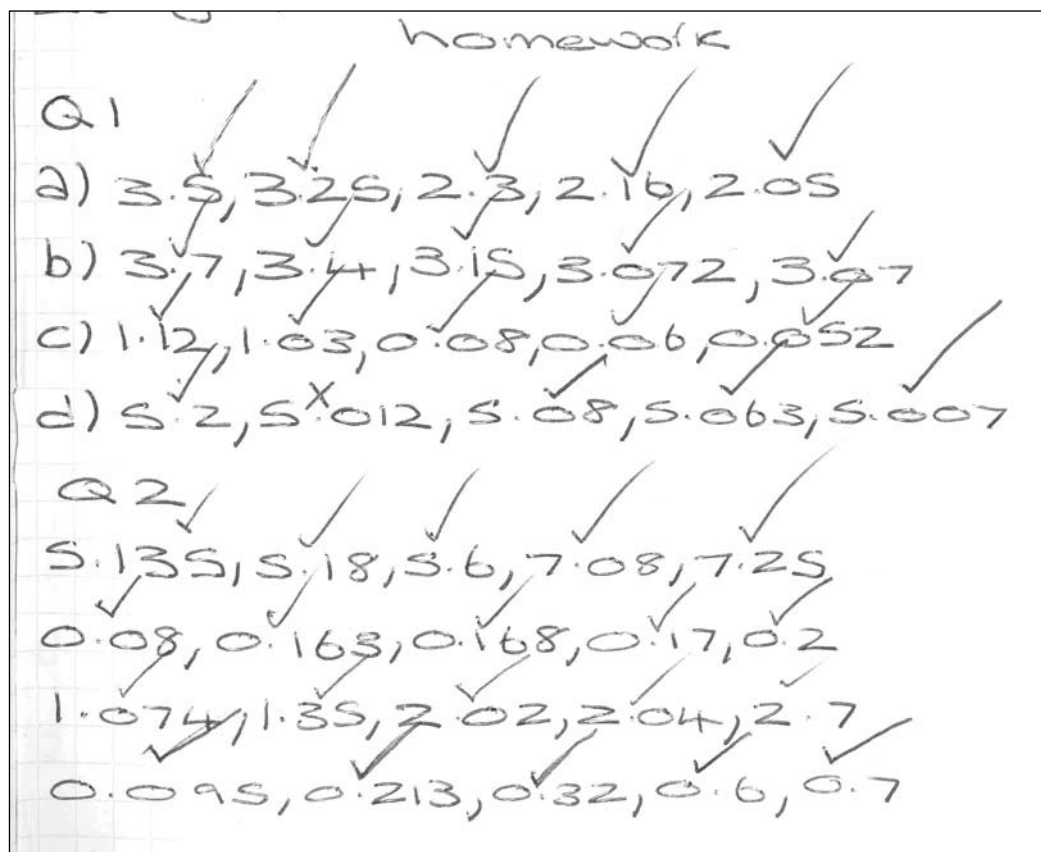 homework
Q1
a) 3.5, 3.25, 2.3, 2.16, 2.05
b) 3.7, 3.4, 3.15, 3.072, 3.07
c) 1.12, 1.03, 0.08, 0.06, 0.052
d) 5.2, 5.012, 5.08, 5.063, 5.007
Q2
5.135, 5.18, 5.6, 7.08, 7.25
0.08, 0.163, 0.168, 0.17, 0.2
1.074, 1.35, 2.02, 2.04, 2.7
0.095, 0.213, 0.32, 0.6, 0.7